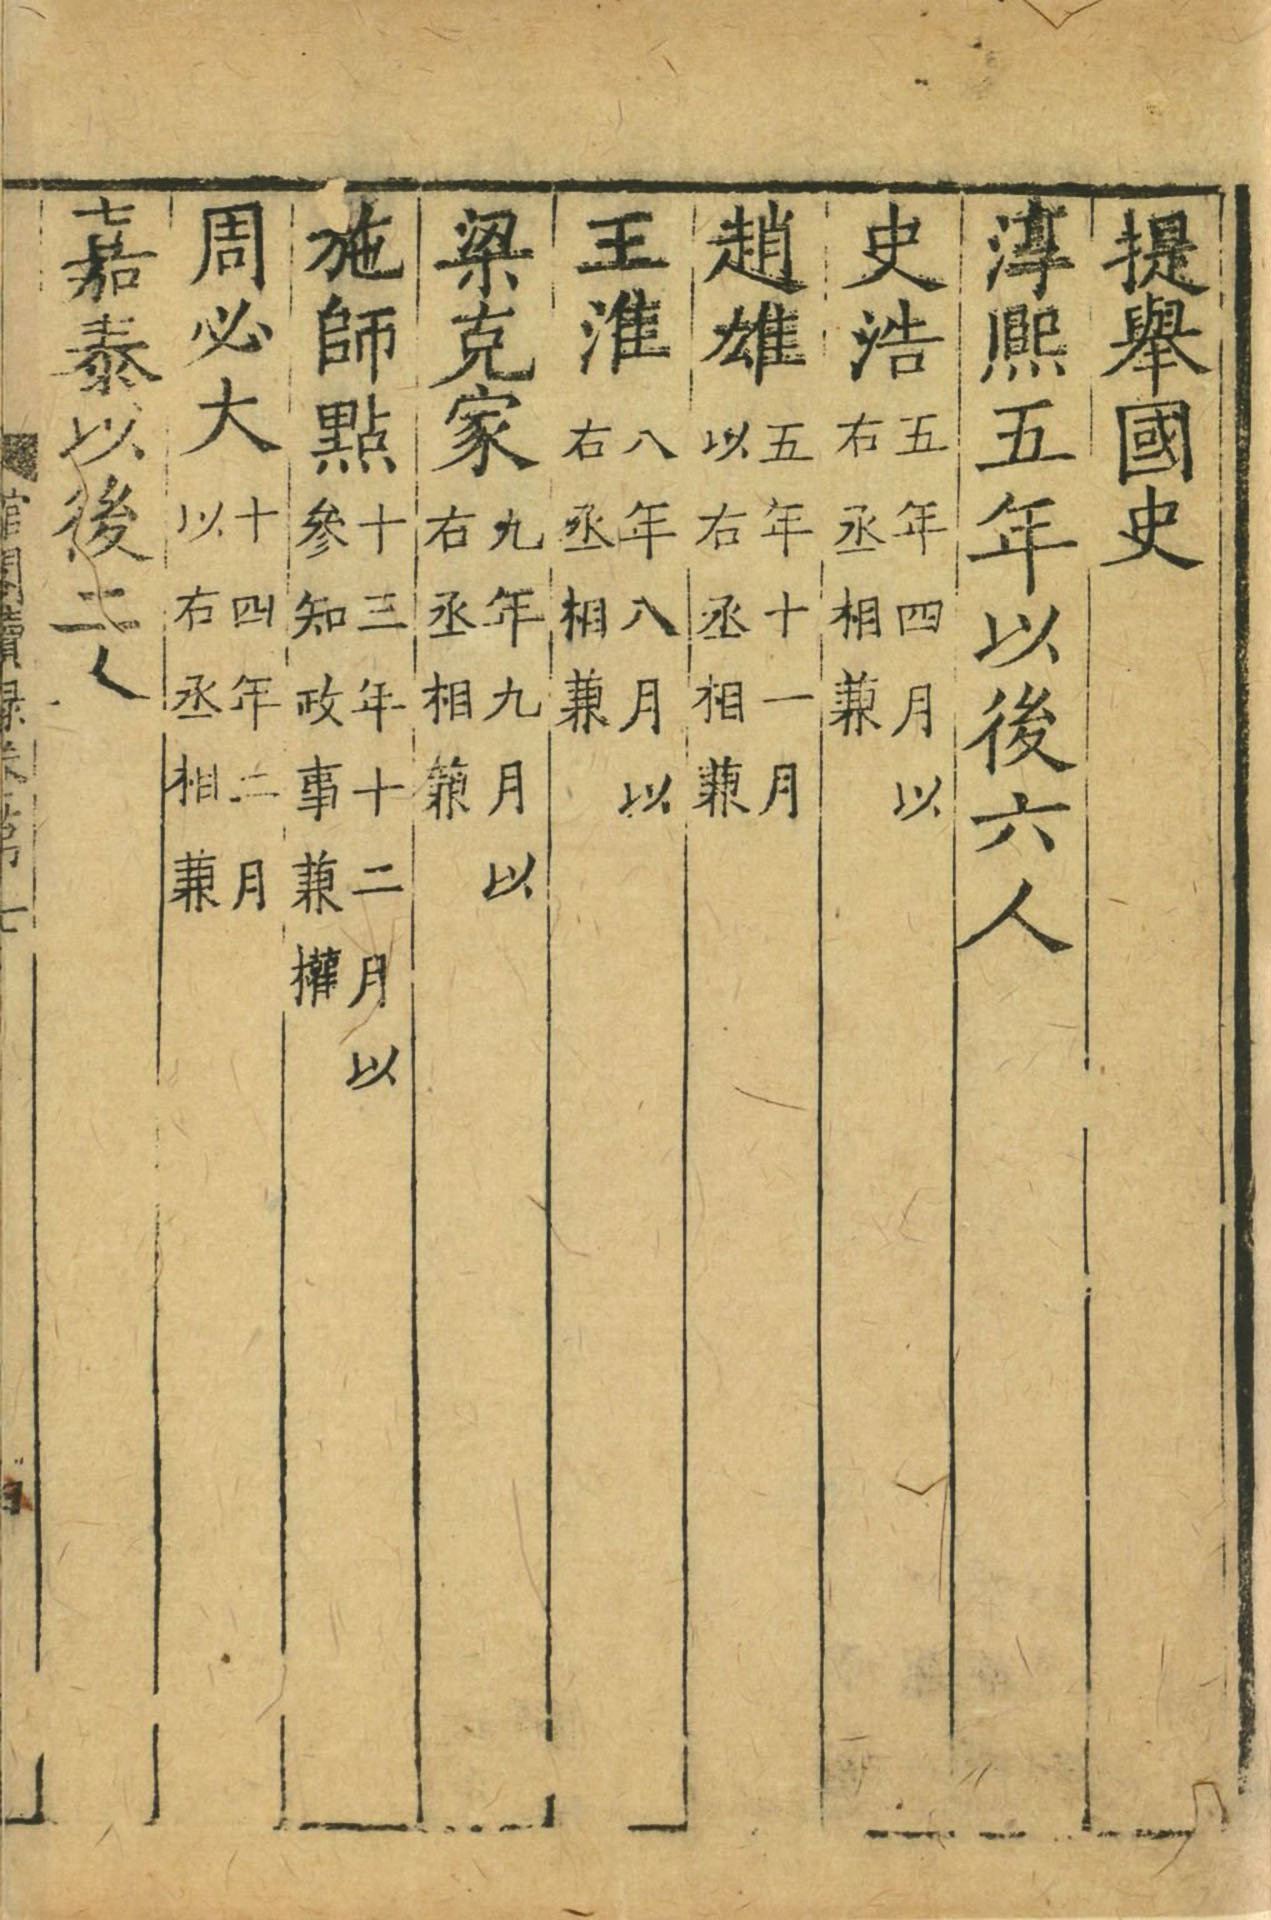 提舉國史
淳熈五年以後六人
史浩五年四月以右丞相兼
趙雄五年十一月以右丞相兼
王淮八年八月以右丞相兼
梁克家九年九月以右丞相兼
施師點十三年十二月以參知政事兼權
周必大十四年二月以右丞相兼
嘉泰以後二人
館閣續録卷第七